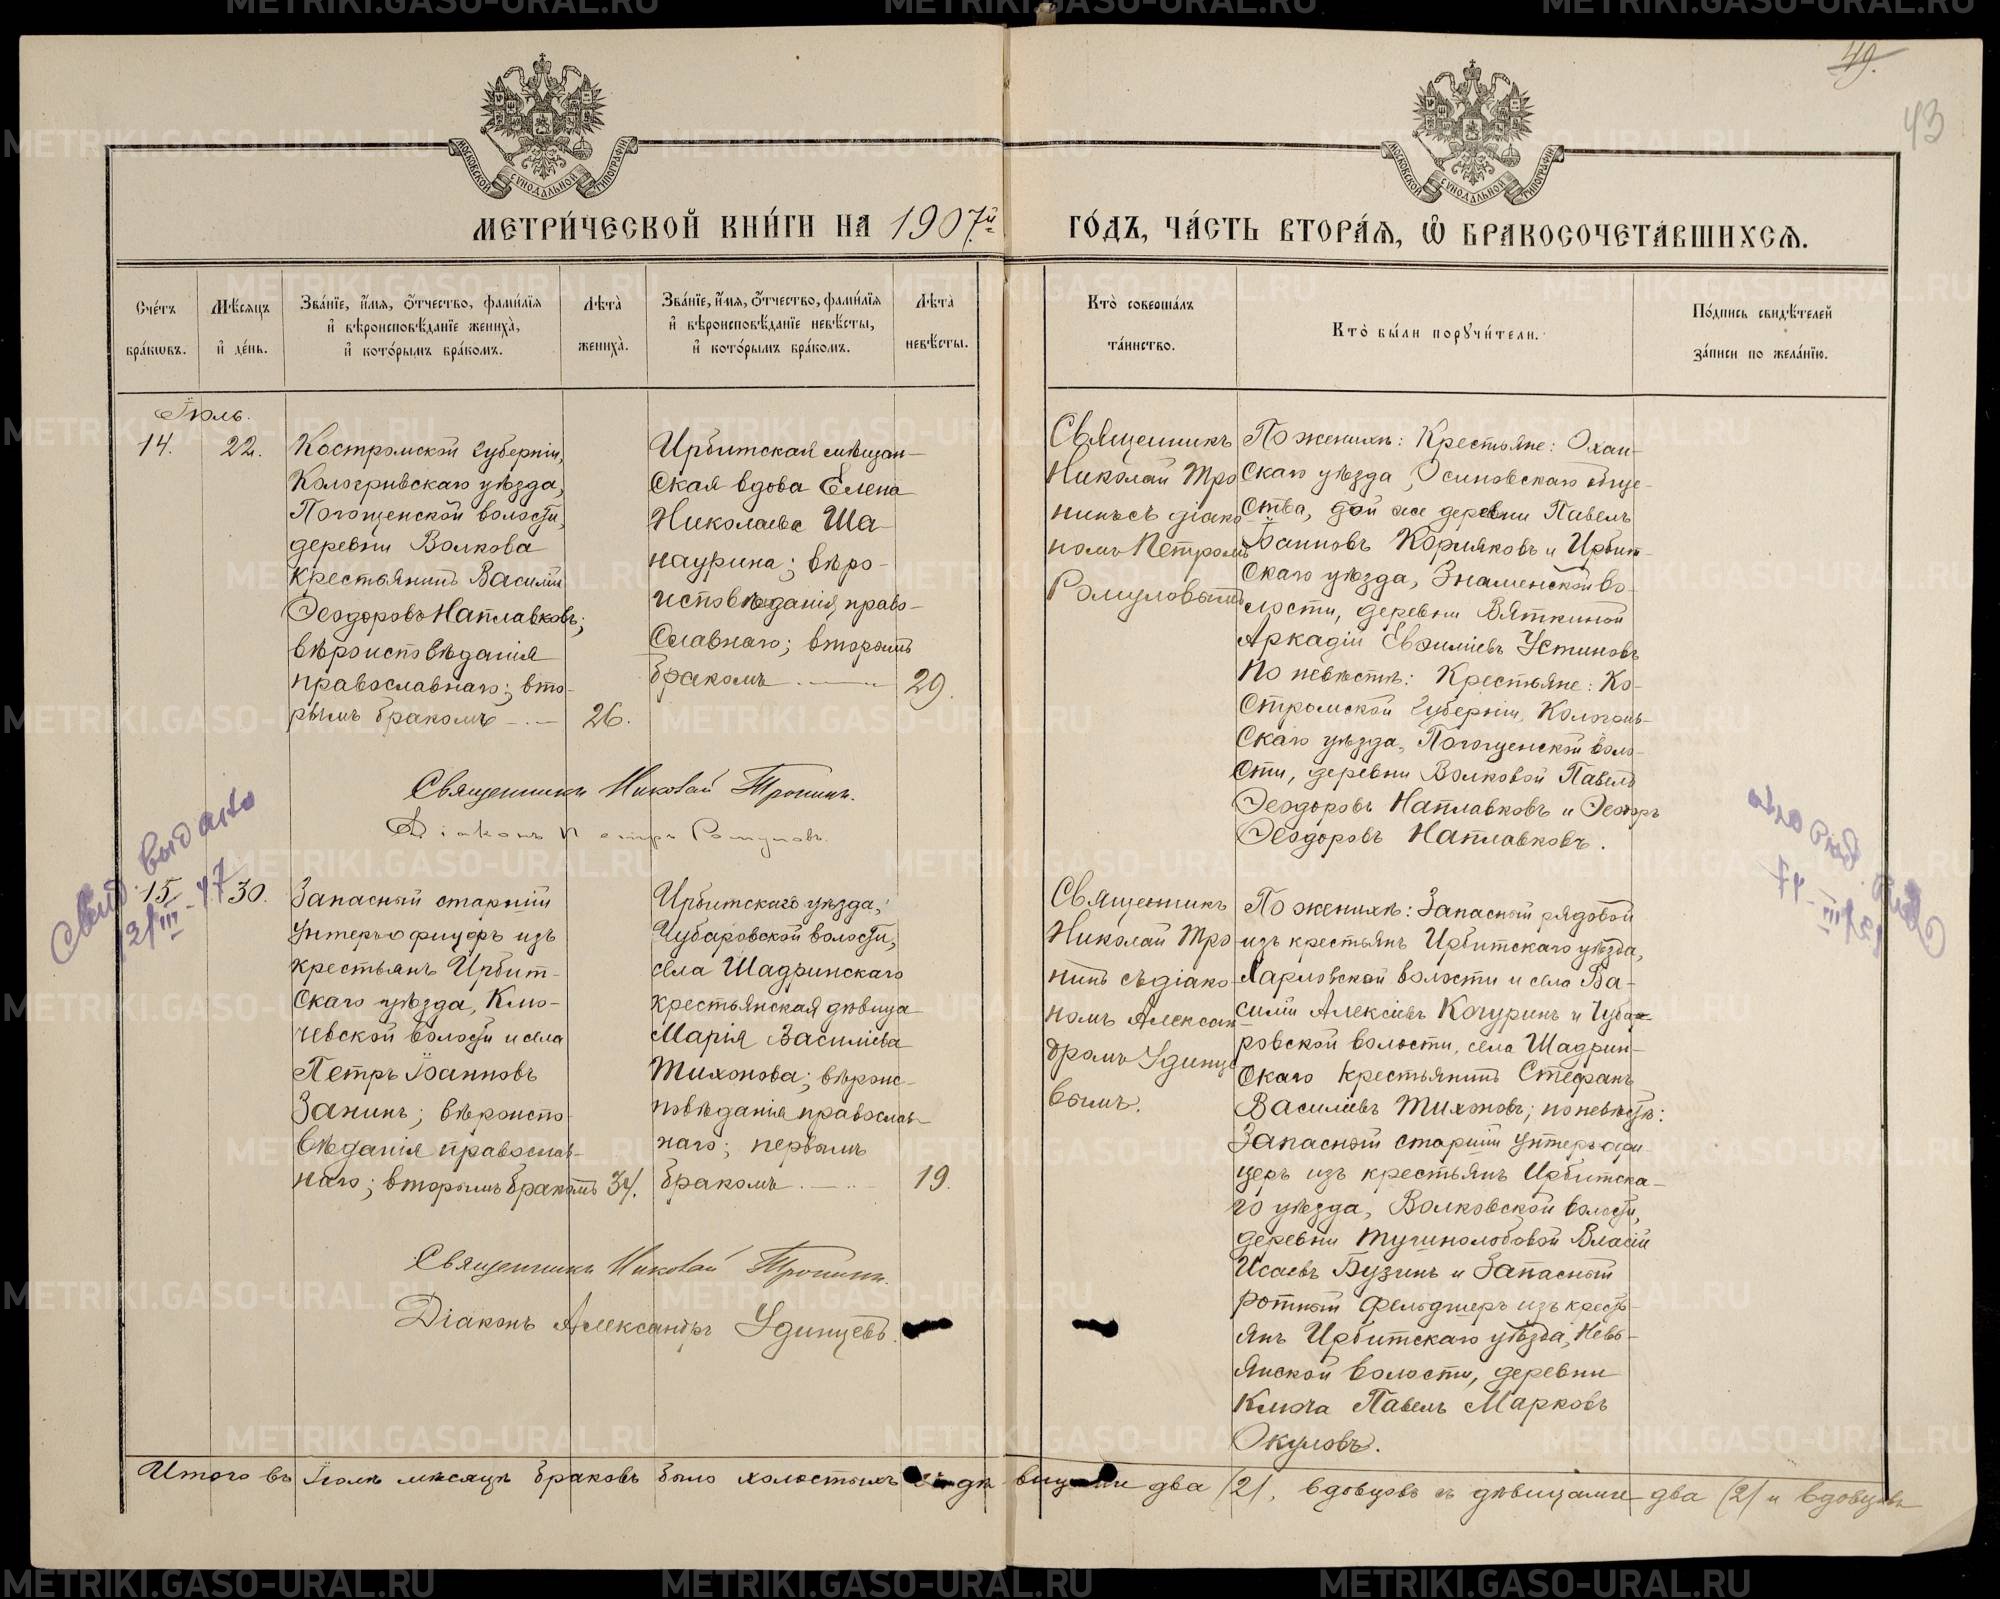 49.
43
МОСКОВСКОЙ СѴНОДАЛЬНОЙ ТИПОГРАФІИ
МОСКОВСКОЙ СѴНОДАЛЬНОЙ ТИПОГРАФІИ
МЕТРИ́ЧЕСКОЙ КНИ́ГИ НА 1907.й ГО́ДЪ, ЧА́СТЬ ВТОРА́Ѧ, Ѽ БРАКОСОЧЕТА́ВШИХСѦ.
Сче́тъ
бра́кωвъ.
Мѣ́сяцъ
и҆ де́нь.
Зва́нїе, и҆́мя, ѻ҆́тчество, фами́лїя
и҆ вѣроисповѣ́данїе жениха̀,
и҆ кото́рымъ бра́комъ.
Лѣ́та̀
жениха̀.
Зва́нїе, и҆́мя, ѻ҆́тчество, фами́лїя
и҆ вѣроисповѣ́данїе невѣ́сты,
и҆ кото́рымъ бра́комъ.
Лѣ́та̀
невѣ́сты.
Кто̀ соверша́лъ
та́инство.
Кто̀ бы́ли порꙋчи́тели.
По́дпись свидѣ́телей
за́писи по жела́нїю.
Іюль.
14.
22.
Костромской губерніи,
Кологривскаго уѣзда,
Погощенской волости,
деревни Волкова
крестьянинъ Василій
Ѳеодоровъ Наплавковъ;
вѣроисповѣданія
православнаго; вто-
рымъ бракомъ
26.
Ирбитская мѣщан-
ская вдова Елена
Николаева Ша-
наурина; вѣро-
исповѣданія право-
славнаго; вторымъ
бракомъ
29.
Священникъ
Николай Тро
нинъ съ діако
номъ Петромъ
Ромуловымъ
По женихѣ: Крестьяне: Охан-
скаго уѣзда, Осиновскаго обще-
ства, той же деревни Павелъ
Іоанновъ Коряковъ и Ирбит-
скаго уѣзда, Знаменской во-
лости, деревни Вяткиной
Аркадій Евѳиміевъ Устиновъ
По невѣстѣ: Крестьяне: Ко-
стромской губерніи,
скаго уѣзда, Погощенской воло-
сти, деревни Волковой Павелъ
Ѳеодоровъ Наплавковъ и Ѳеодоръ
Ѳеодоровъ Наплавковъ.
Священникъ Николай Тронинъ.
Діаконъ Петръ Ромуловъ.
Свид. выдано
12/III-47
15
30.
Запасный старшій
унтеръ-офицеръ изъ
крестьянъ Ирбит-
скаго уѣзда, Клю-
чевской волости и села
Петръ Іоанновъ
Занинъ; вѣроиспо-
вѣданія православ-
наго; вторымъ бракомъ
34.
Ирбитскаго уѣзда,
Чубаровской волости,
села Шадринскаго
крестьянская дѣвица
Марія Василіева
Тихонова; вѣроис-
повѣданія православ-
наго; первымъ
бракомъ
19.
Священникъ
Николай Тро
нинъ съ діако-
номъ Алексан
дромъ Удинце
вымъ.
По женихѣ: Запасный рядовой
изъ крестьянъ Ирбитскаго уѣзда,
Харловской волости и села Ва-
силій Алексіевъ Кочуринъ и Чуба-
ровской волости, села Шадрин-
скаго крестьянинъ Стефанъ
Василіевъ Тихоновъ; по невѣстѣ:
Запасный старшій унтеръ-офи
церъ изъ крестьянъ Ирбитска-
го уѣзда, Волковской волости,
деревни Тугинолобовой Власій
Исаевъ Бузинъ и Запасный
ротный фельдшеръ изъ кресть-
янъ Ирбитскаго уѣзда, Невь-
янской волости, деревни
Ключа Павелъ Марковъ
Окуловъ.
Священникъ Николай Тронинъ.
Діаконъ Александръ Удинцевъ.
Итого въ Іюлѣ мѣсяцѣ браковъ было холостыхъ съ дѣ-вицами два /2/, вдовцовъ съ дѣвицами два /2/ и вдовцовъ
METRIKI.GASO-URAL.RU